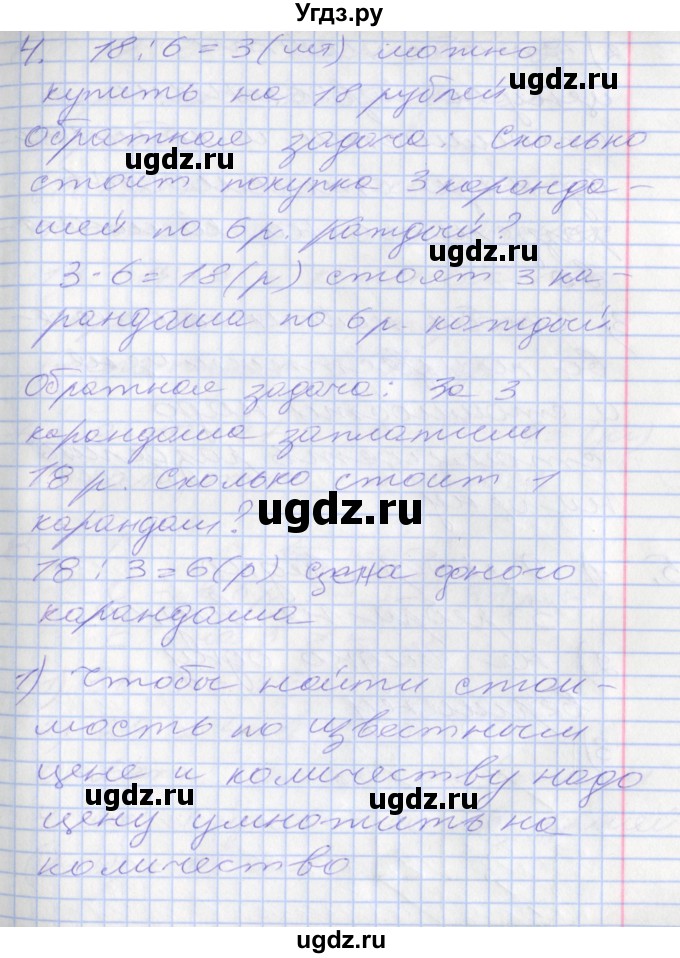 Угдз.ру
4. 18 : 6 = 3 (шт) можно
купить на 18 рублей
ugdz.ru
Обратная задача: Сколько
ugdz.ru
стоит покупка 3 каранда-
шей по 6 р. каждый?
ugdz.ru
3 · 6 = 18 (р) стоят 3 ка-
рандаша по 6 р. каждый.
Обратная задача: За 3
карандаша заплатили
18 р. Сколько стоит 1
карандаш?
ugdz.ru
18 : 3 = 6 (р) цена одного
карандаша
ugdz.ru
1) Чтобы найти стои-
мость по известным
цене и количеству надо
ugdz.ru ugdz.ru
цену умножить на
количество
ugdz.ru